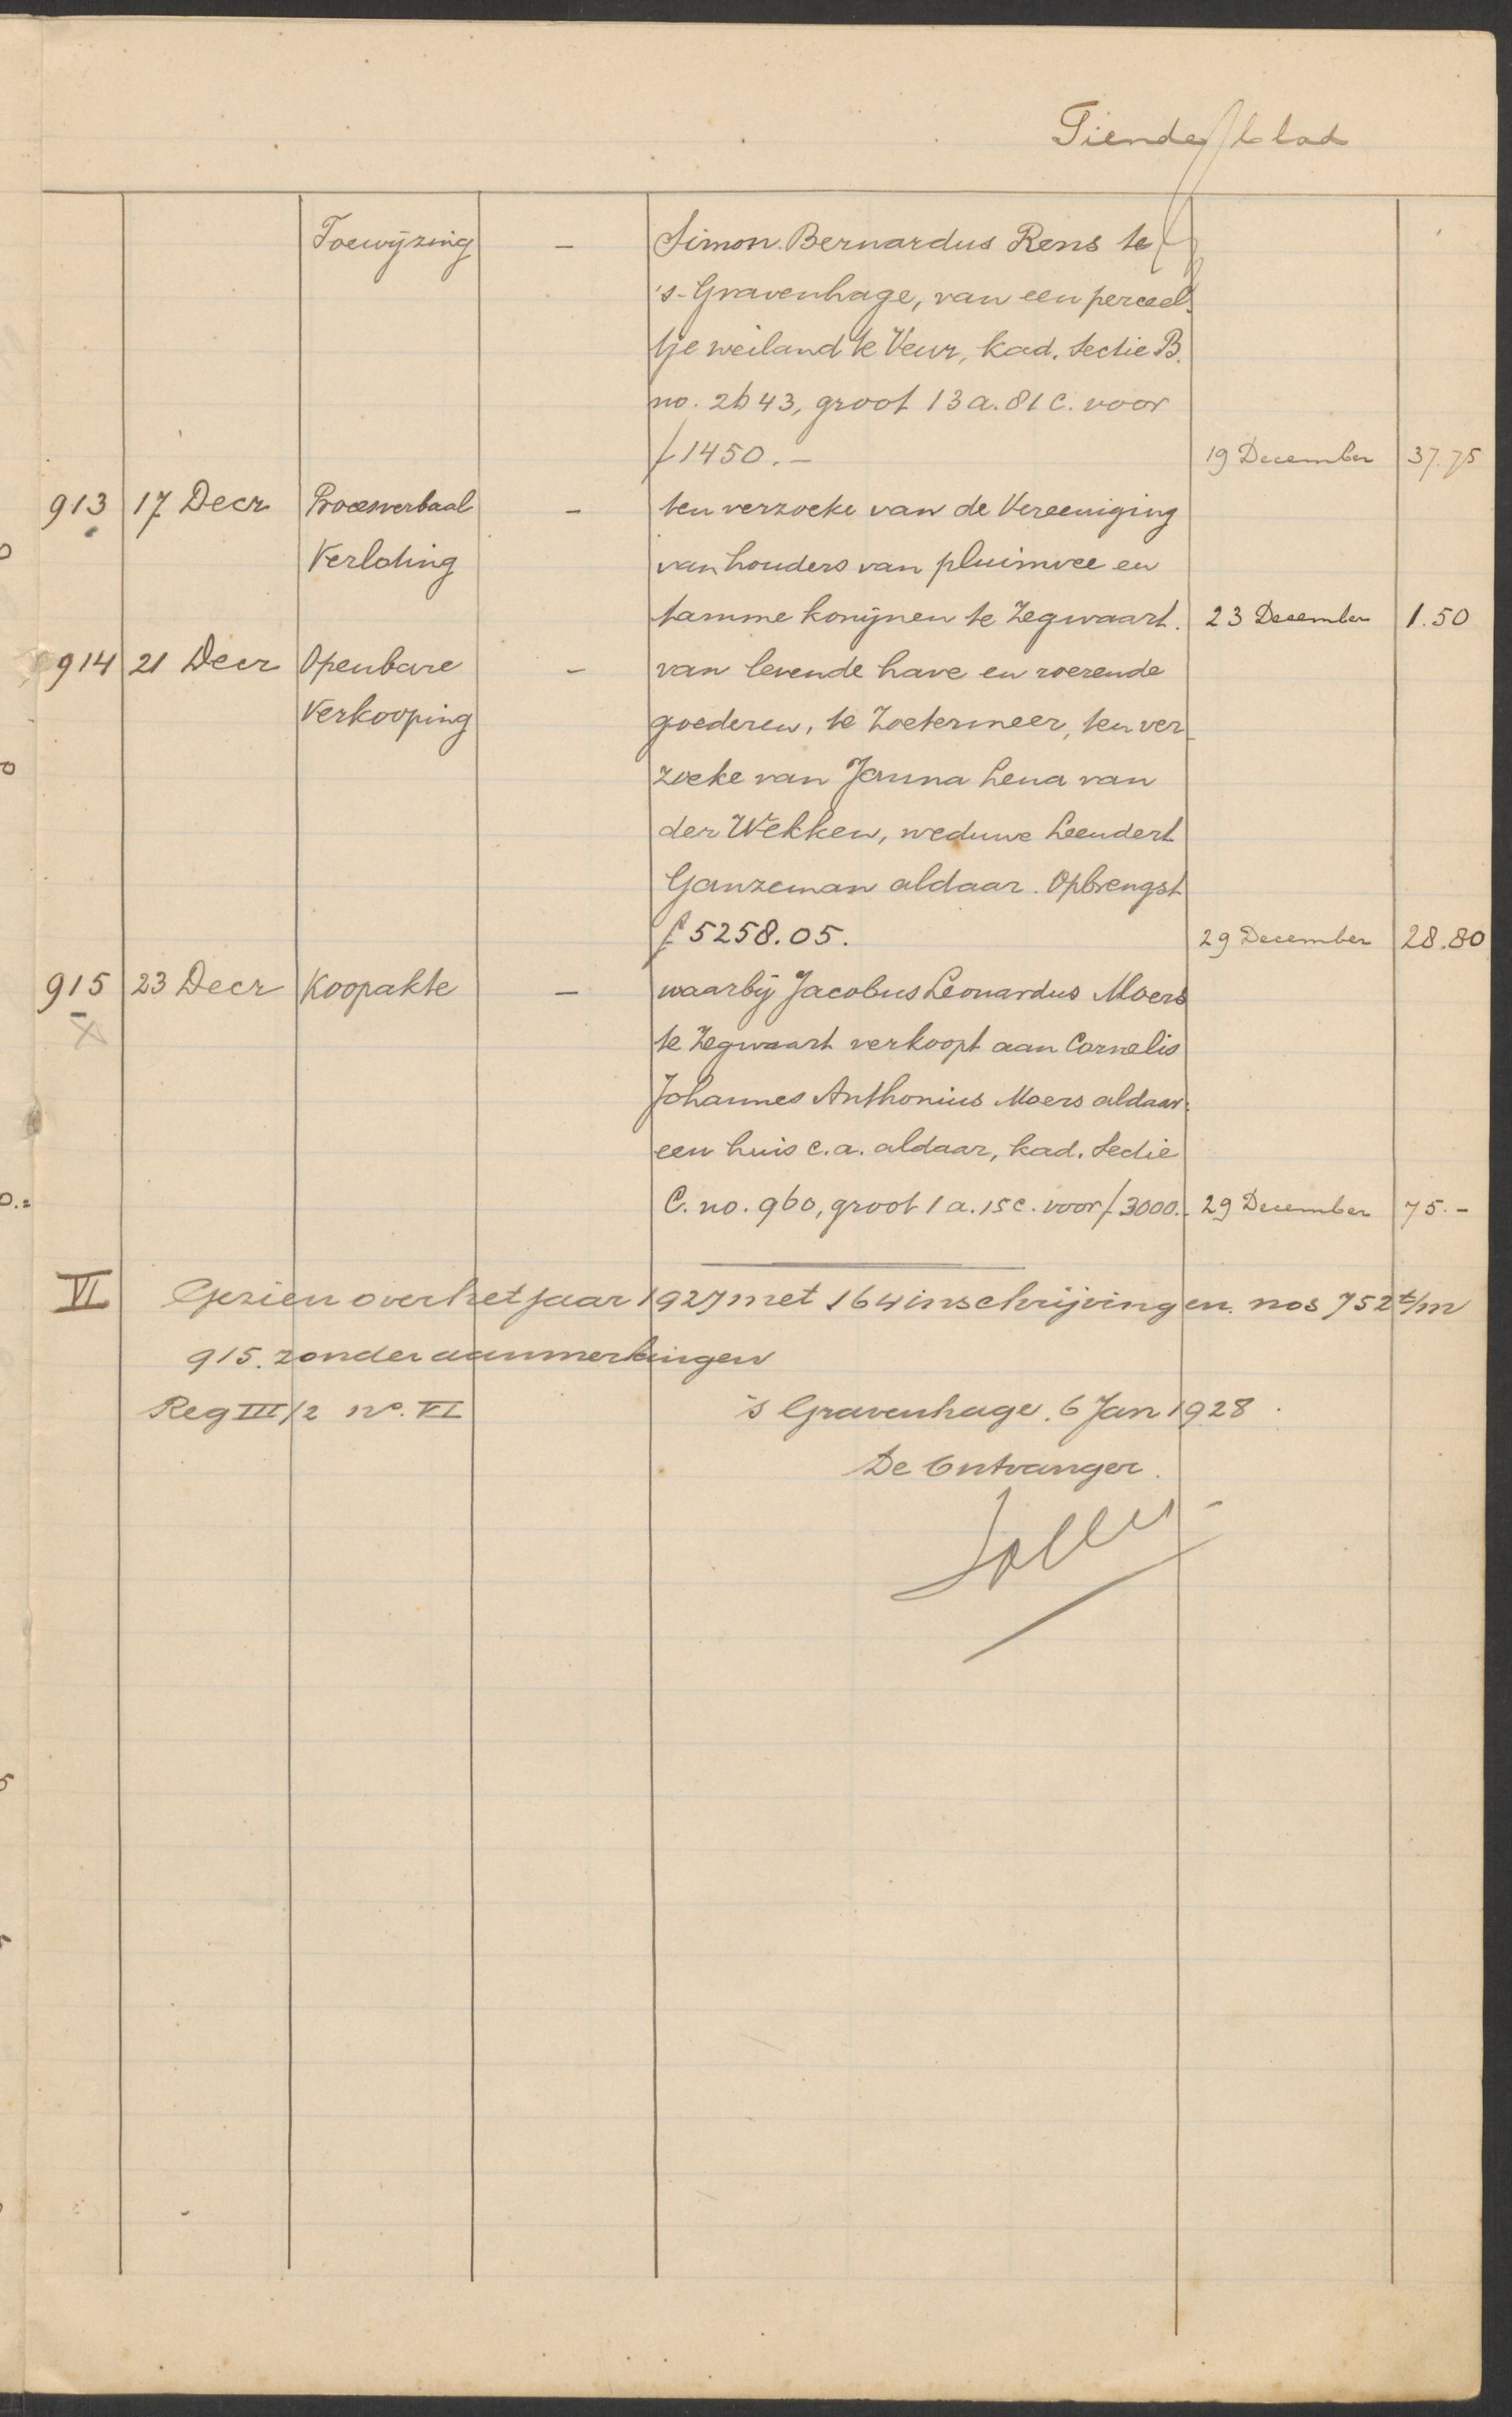 Tiende blad
Toewijzing - Simon Bernardus Rens te
's-Gravenhage, van een perceel-
tje weiland te Veur, kad. sectie B.
no. 2643, groot 13 a. 81 c. voor
ƒ 1450.- 19 December 37.75
913 17 Decr Procesverbaal - ten verzoeke van de Vereeniging
Verloting van houders van pluimvee en
tamme konijnen te Zegwaart. 23 December 1.50
914 21 Decr Openbare - van levende have en roerende
Verkooping goederen, te Zoetermeer, ten ver-
zoeke van Janna Lena van
der Wekken, weduwe Leendert
Ganzeman aldaar. Opbrengst
ƒ 5258.05. 29 December 28.80
915 23 Decr Koopakte - waarbij Jacobus Leonardus Moers
te Zegwaart verkoopt aan Cornelis
Johannes Anthonius Moers aldaar:
een huis c.a. aldaar, kad. sectie
C. no. 960, groot 1 a. 15 c. voor ƒ 3000.- 29 December 75.-
VI Gezien over het jaar 1927 met 164 inschrijvingen. nos 752 t/m
915. zonder aanmerkingen
Reg III/2 no. VI 's Gravenhage. 6 Jan 1928.
De Ontvanger.